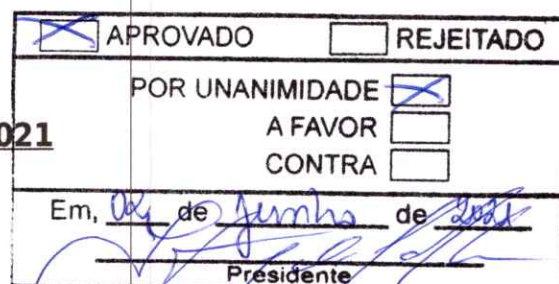 APROVADO REJEITADO
POR UNANIMIDADE
021
A FAVOR
CONTRA
Em, 02 de Junho de 2021
Presidente